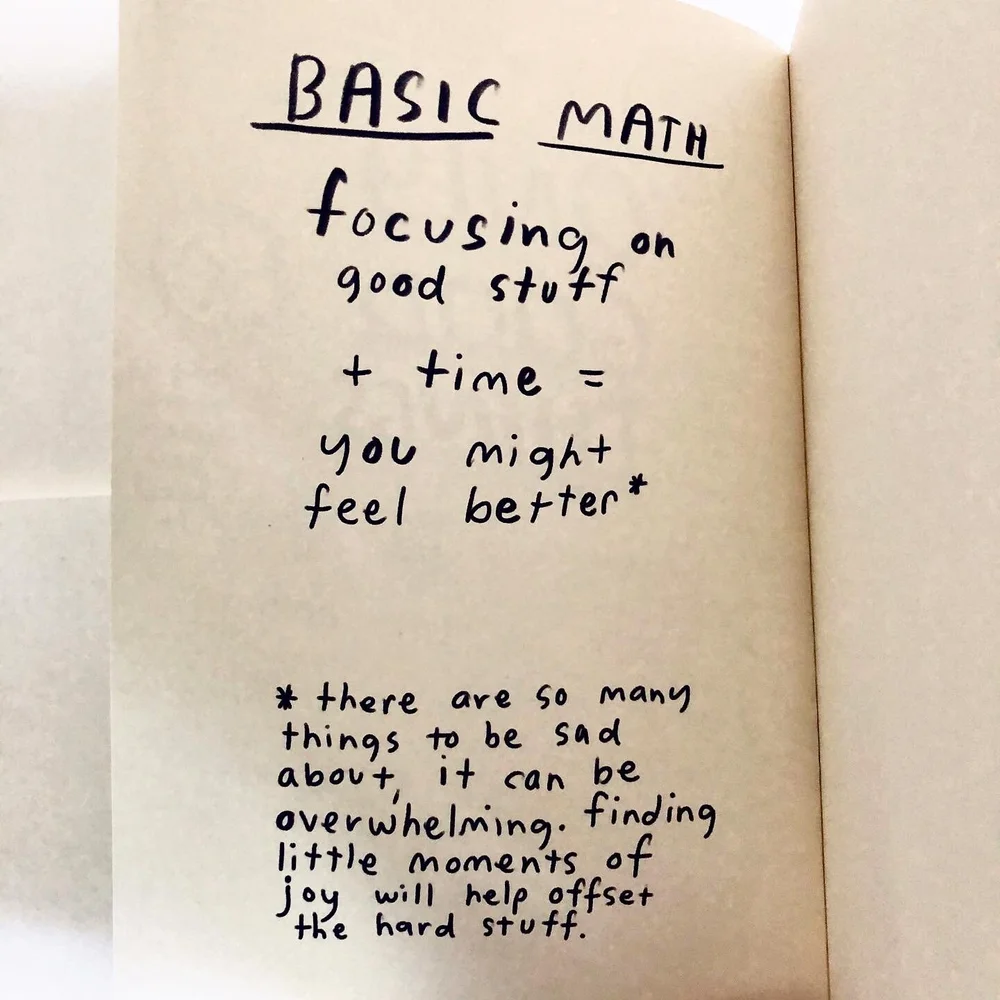 BASIC MATH
focusing on
good stuff
+ time =
you might
feel better*
* there are so many
things to be sad
about, it can be
overwhelming. finding
little moments of
joy will help offset
the hard stuff.